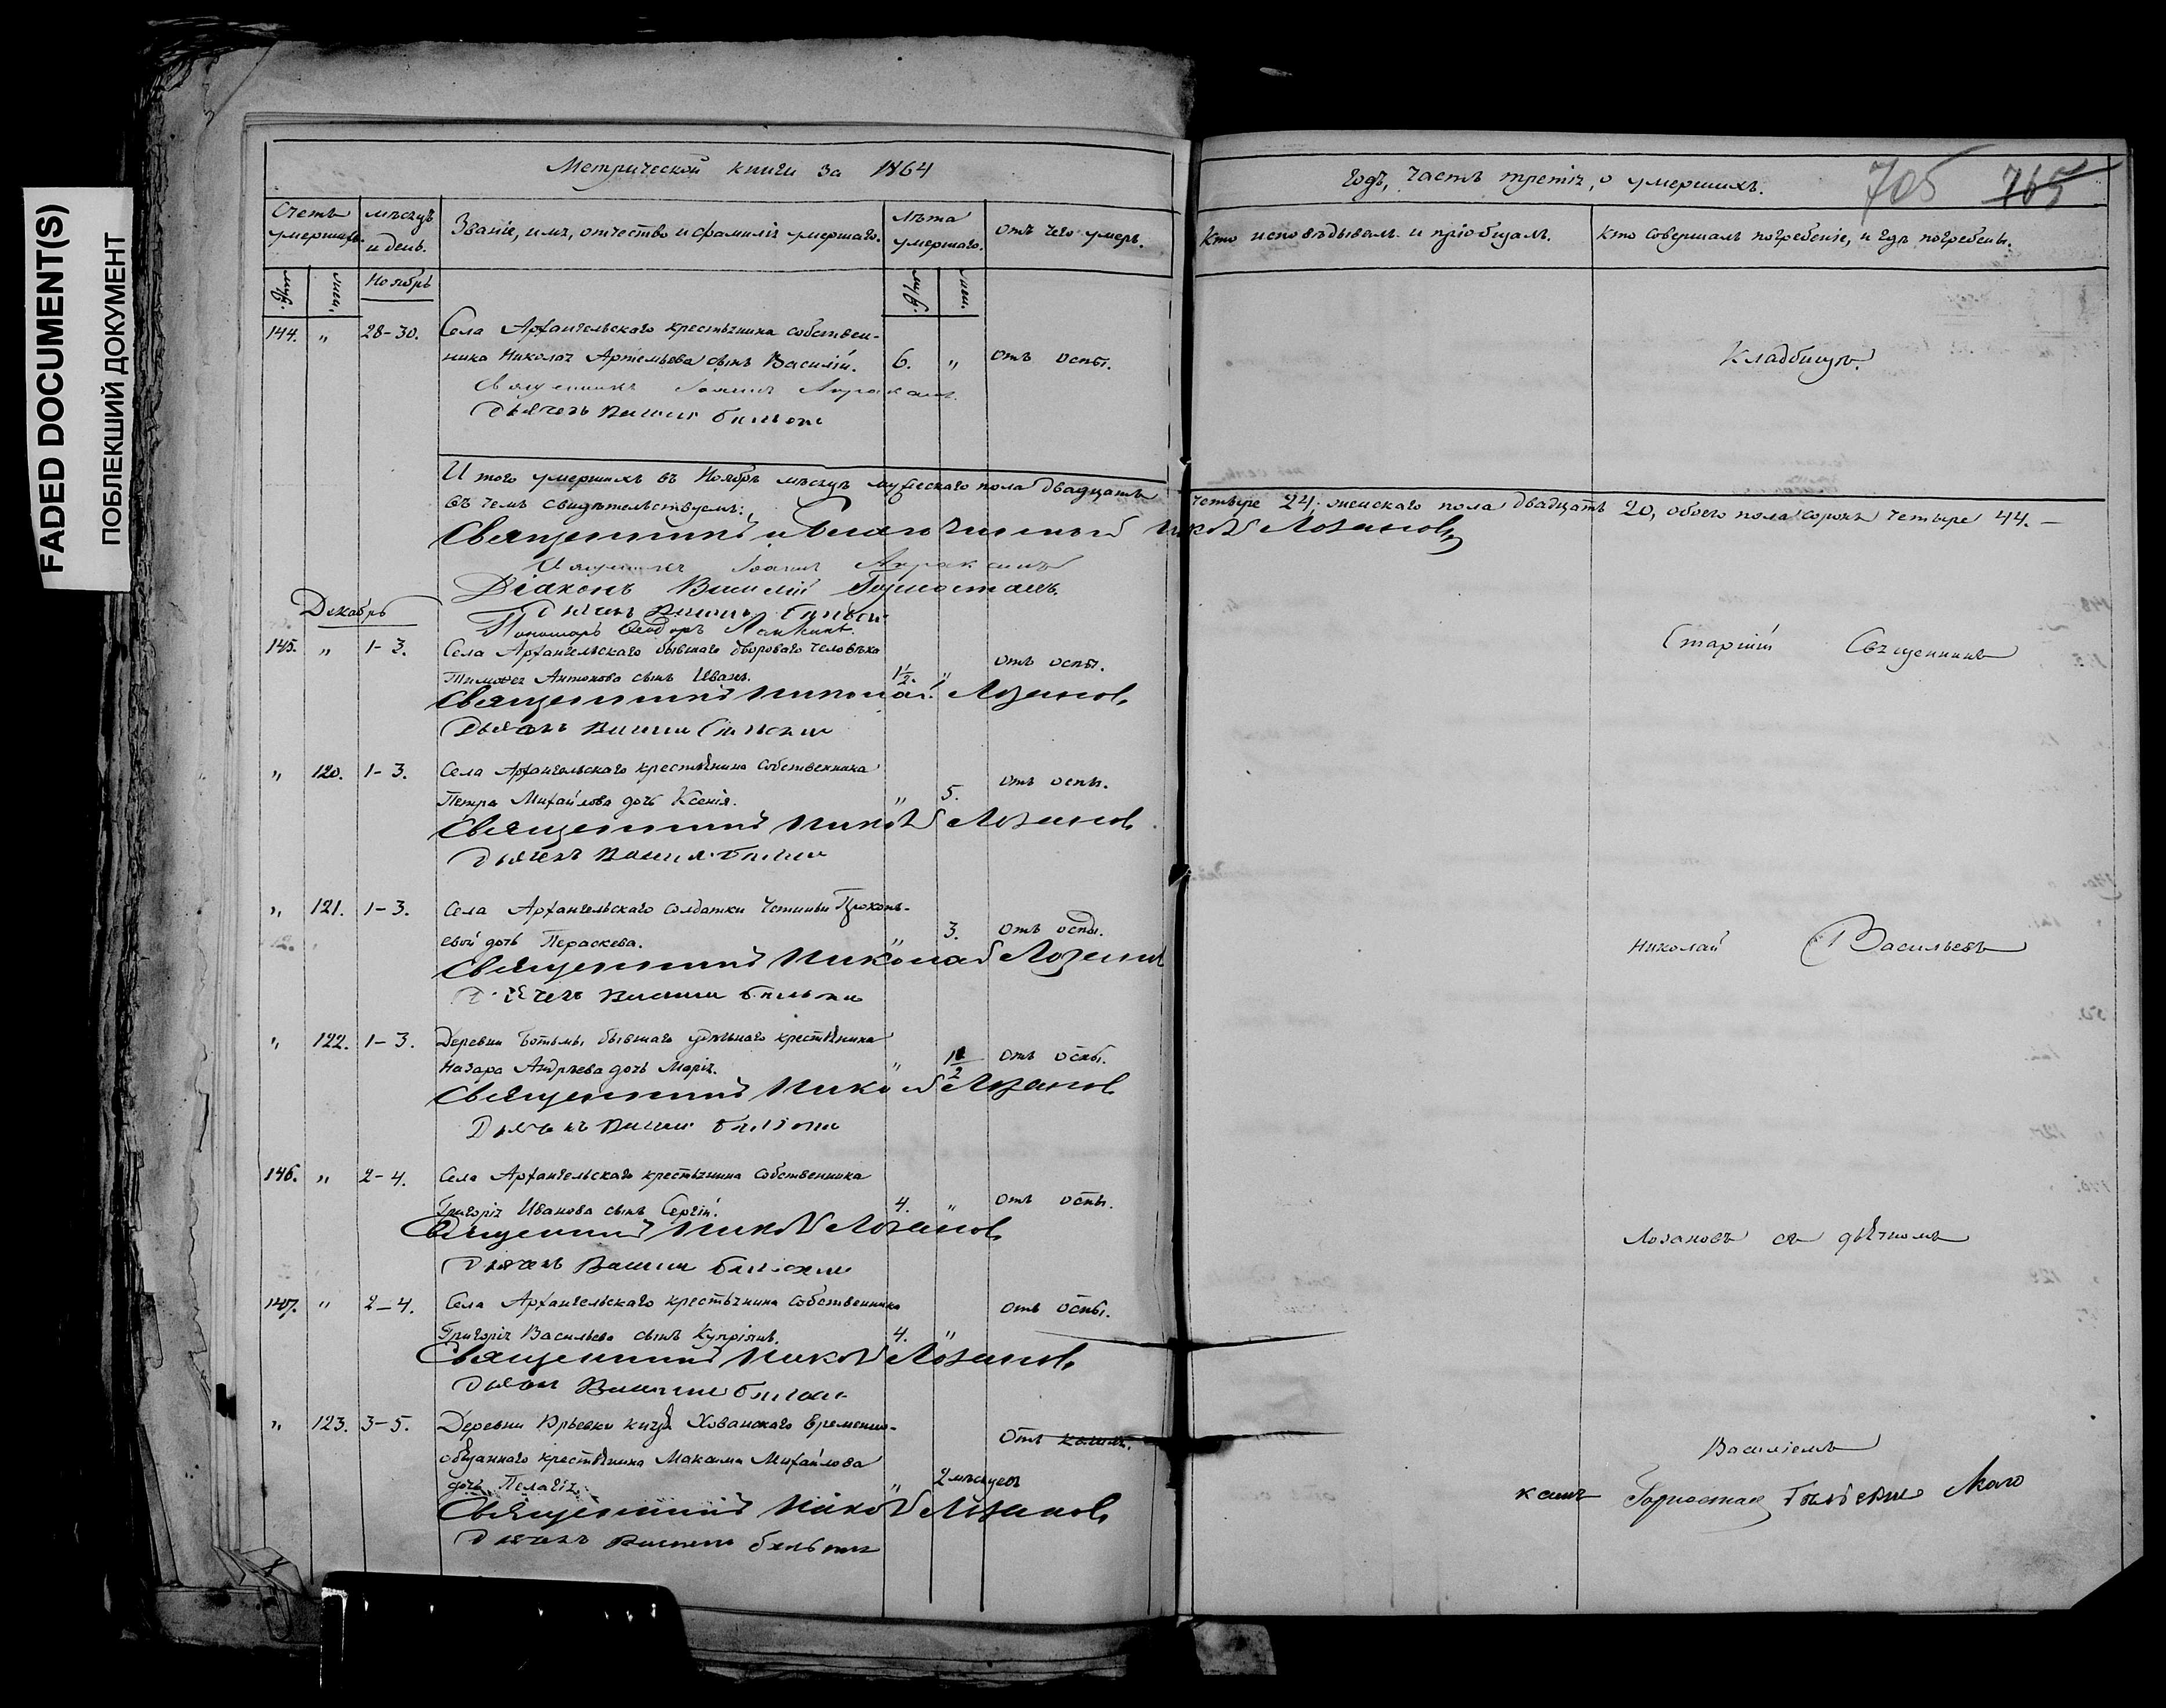 FADED DOCUMENT(S)
ПОБЛЕКШИЙ ДОКУМЕНТ
Метрической книги за 1864
Счетъ умершихъ.
мѣсяцъ и день.
Званіе, имя, отчество и фамилія умершаго.
лѣта умершаго.
отъ чего умеръ.
муж.
жен.
Ноябрь
муж.
жен.
144. " 28-30. Села Архангельскаго крестьянина собствен-
ника Николая Артемьева сынъ Василій. 6. " отъ оспы.
Священникъ Іоаннъ
Дьячекъ
Итого умершихъ въ Ноябрѣ мѣсяцѣ мужескаго пола двадцать
въ чемъ свидѣтельствуемъ:
Священникъ и Благочинный Николай Лозановъ
Священникъ Іоаннъ
Діаконъ Василій Горностаевъ
Дьячекъ
Пономарь Ѳеодоръ
Декабрь
145. " 1-3. Села Архангельскаго бывшаго двороваго человѣка
Тимоѳея Антонова сынъ Иванъ. 1 1/2. " отъ оспы.
Священникъ Николай Лозановъ
Дьячекъ
" 120. 1-3. Села Архангельскаго крестьянина собственника
Петра Михайлова дочь Ксенія. " 5. отъ оспы.
Священникъ Николай Лозановъ
Дьячекъ
" 121. 1-3. Села Архангельскаго солдатки Устиньи Прокопь-
евой дочь Параскева. " 3. отъ оспы.
Священникъ Николай Лозановъ
Дьячекъ
" 122. 1-3. Деревни Ботьмы бывшаго удѣльнаго крестьянина
Назара Андреева дочь Марія. " 1/2 отъ оспы.
Священникъ Николай Лозановъ
Дьячекъ
146. " 2-4. Села Архангельскаго крестьянина собственника
Григорія Иванова сынъ Сергій. 4. " отъ оспы.
Священникъ Николай Лозановъ
Дьячекъ
147. " 2-4. Села Архангельскаго крестьянина собственника
Григорія Васильева сынъ Купріянъ. 4. " отъ оспы.
Священникъ Николай Лозановъ
Дьячекъ
" 123. 3-5. Деревни Юрьевки князя Хованскаго временно-
обязаннаго крестьянина Максима Михайлова
дочь Пелагія. " 2 мѣсяцевъ отъ кашля.
Священникъ Николай Лозановъ
Дьячекъ
годъ, часть третія, о умершихъ.
705 765
Кто исповѣдывалъ и пріобщалъ.
Кто совершалъ погребеніе, и гдѣ погребены.
Кладбищѣ.
четыре 24, женскаго пола двадцать 20, обоего пола сорокъ четыре 44. —
Старшій Священникъ
Николай Васильевъ
Лозановъ съ дьячкомъ
Василіемъ